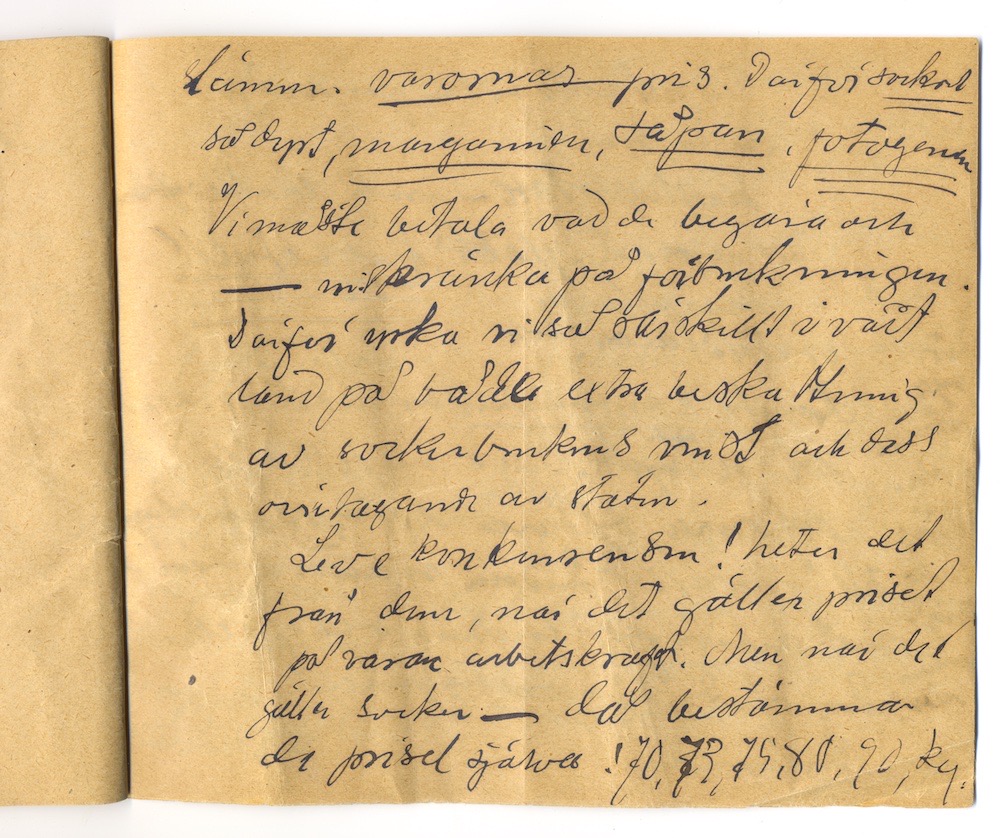 stämm. varornas pris. Därför sockret
så dyrt, margarinen, såpan, fotogenen
Vi måste betala vad de begära och
— inskränka på förbrukningen.
Därför yrka vi så särskillt i vårt
land på både extra beskattning
av sockerbrukens vinst och dess
övertagande av staten.
Leve konkurrensen! heter det
från dem, när det gäller priset
på varan arbetskraft. Men när det
gäller socker — då bestämma
de priset själva! 70, 73, 75, 80, 90,